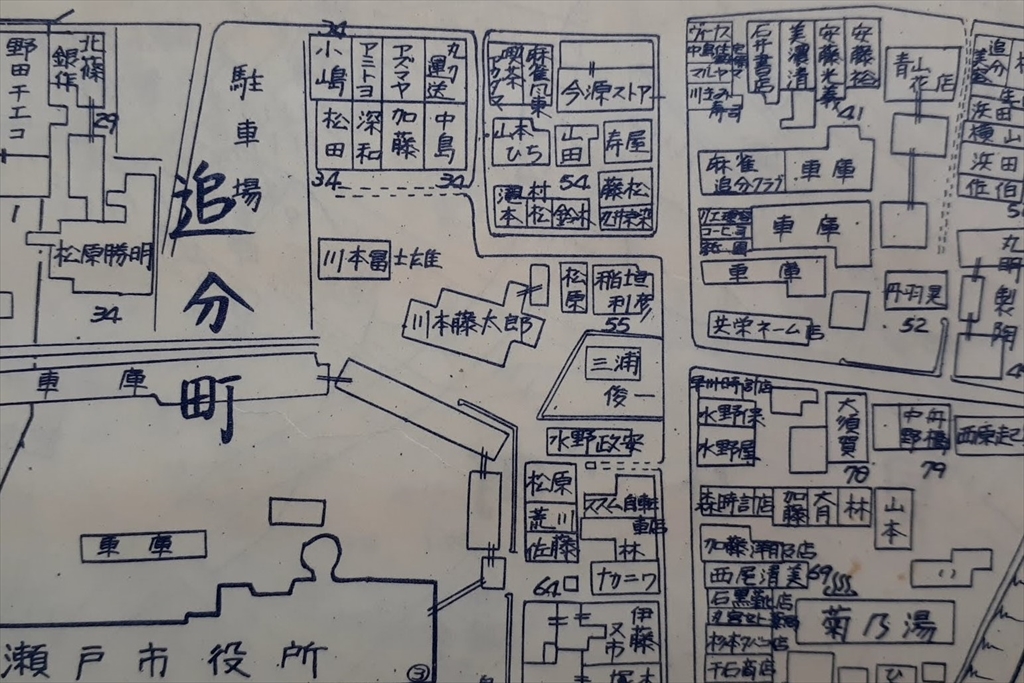 野田チエコ
北篠銀作
29
駐車場
34
小嶋
アニトヨ
アズマヤ
丸八運送
松田
深和
加藤
中島
34
34
喫茶
麻雀
東
今源ストアー
山本
ひち
山田
寿屋
54
村松
鈴木
藤松
ヴィーナス
川きみ寿司
石井書店
美濃清
安藤光義
安藤裕
41
青山花店
麻雀追分クラブ
車庫
コーヒー
車庫
車庫
共栄ネーム店
丹羽晃
52
追分
浜田
横山
浜田
佐伯
丸明製陶
追分町
1
松原勝明
34
川本冨士雄
川本藤太郎
松原
稲垣利彦
55
三浦俊一
水野政安
車庫
早川時計店
水野保
水野屋
大須賀
78
中野
舟橋
79
松原
荒川
佐藤
ススム自転車店
林
ナカニワ
64
伊藤又市
塚本
森時計店
加藤
林
山本
加藤洋服店
西尾清美
69
石黒靴店
杉本タバコ店
千石商店
菊乃湯
ひ
車庫
瀬戸市役所
③